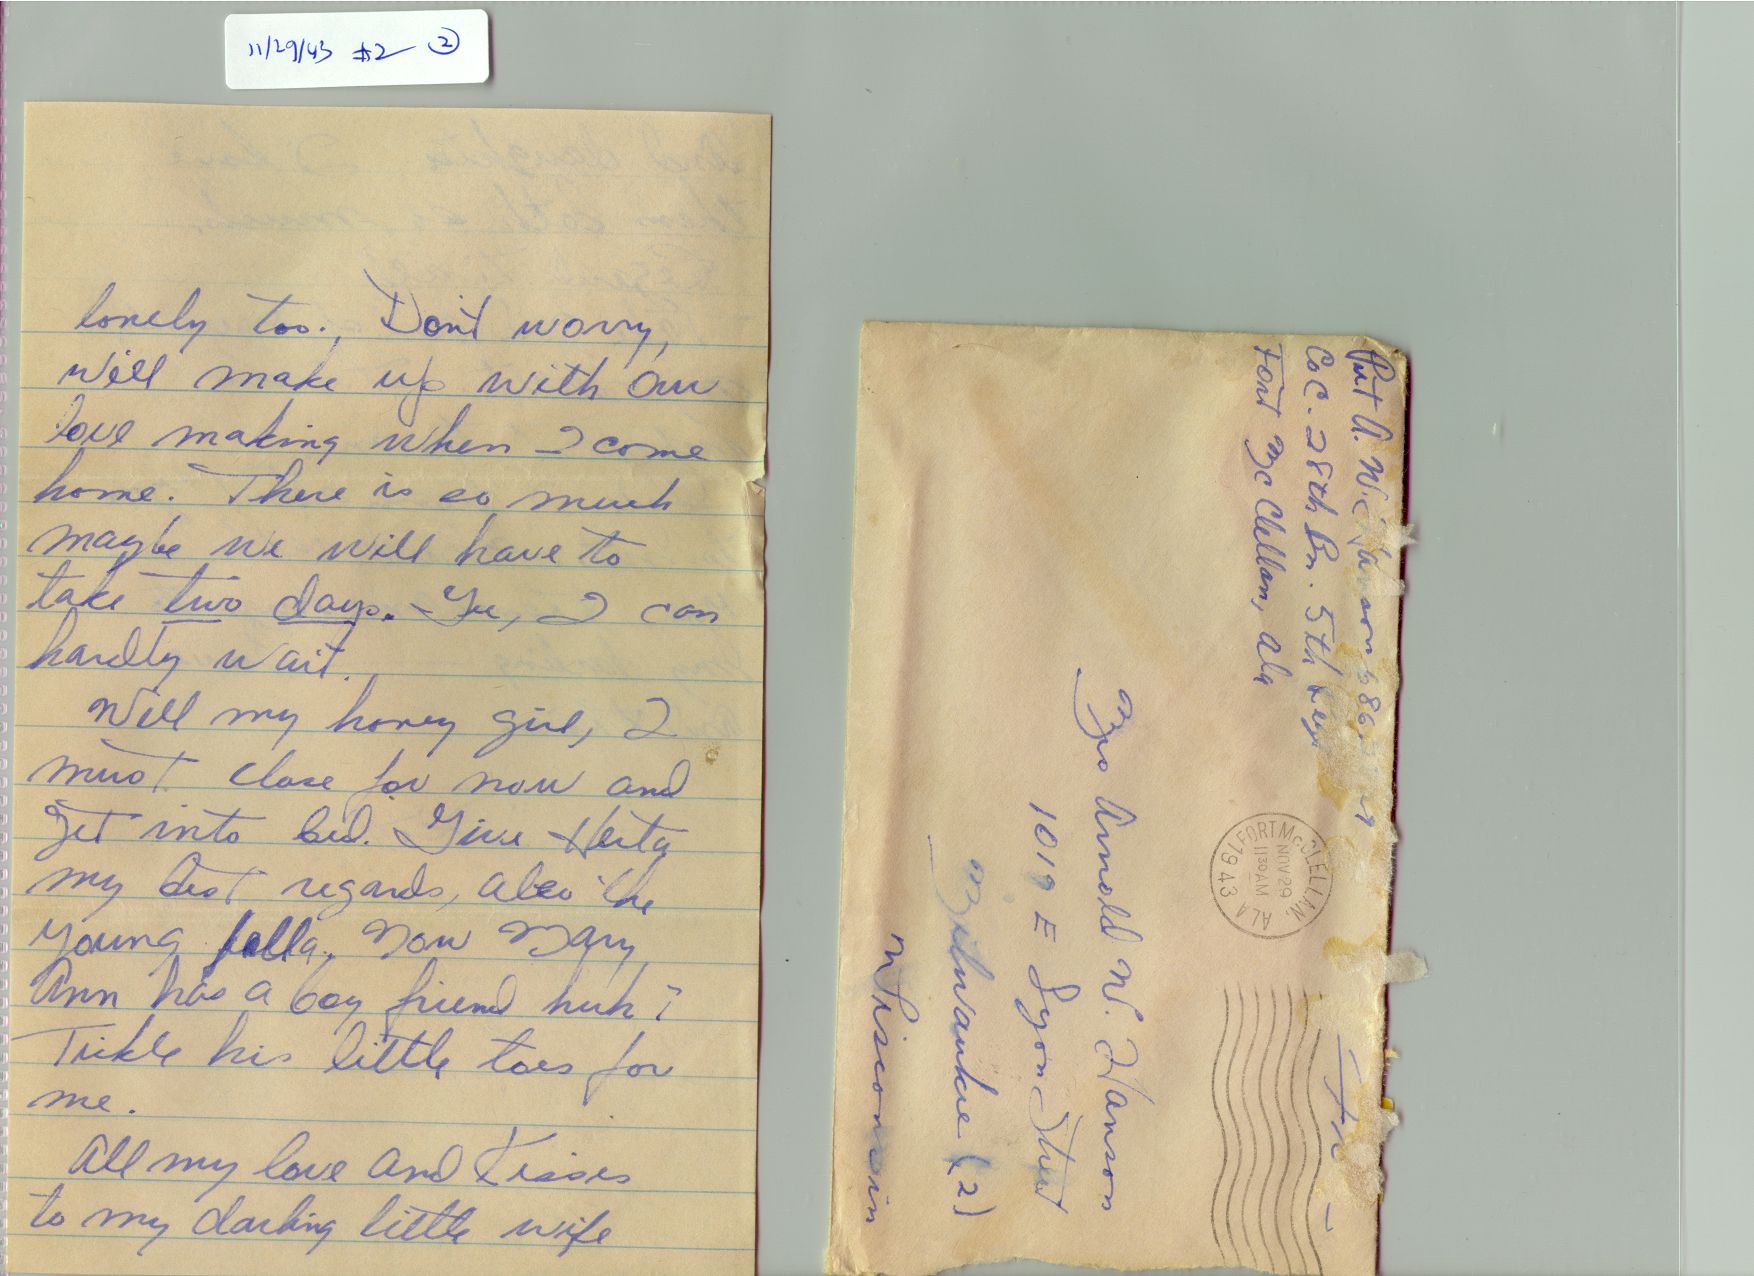 11/29/43 #2 ②
lonely too. Don't worry,
will make up with our
love making when I come
home. There is so much
maybe we will have to
take two days. Gee, I can
hardly wait.
Well my honey girl, I
must close for now and
get into bed. Give Herta
my best regards, also the
young fella. Now Mary
Ann has a boy friend huh?
Tickle his little toes for
me.
All my love and Kisses
to my darling little wife
Pvt A. W. Hanson
Co C. 28th Bn. 5th Regt
Fort McClellan, Ala
FORT McCLELLAN, ALA
NOV 29
1130 AM
1943
Mrs Arnold W. Hanson
1019 E Lyon Street
Milwaukee (2)
Wisconsin